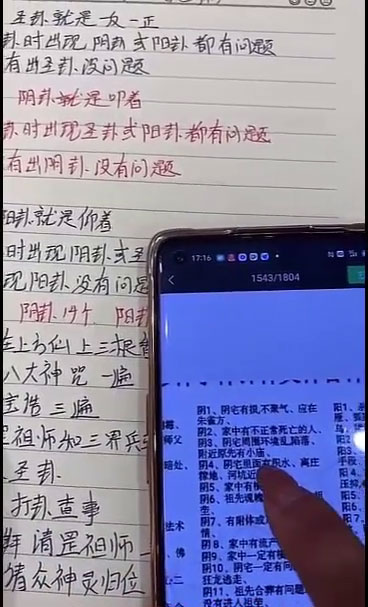 圣卦就是一反一正
卦时出现阴卦或阳卦都有问题
有出圣卦没问题
阴卦就是叩着
卦时出现圣卦或阳卦都有问题
有出阴卦没有问题
阳卦就是仰着
时出现阴卦或圣
现阳卦没有问题
阴卦19个 阳卦
左上方仙上三根香
八大神咒一遍
宝诰三遍
祖师和三界兵
圣卦
打卦查事
拜请罡祖师
请众神灵归位
17:16
1543/1804
阴1、阴宅有损,不聚气、应在
朱雀方、
阴2、家中有不正常死亡的人、
阴3、阴宅周围环境乱陷落、
附近原先有小庙、
阴4、阴宅里面有积水、离庄
稼地、河坑近
阴5、家中有
阴6、祖先魂魄
生、
阴7、有附体或
阴8、家中有流产
阴9、家中一定有
阴10、阴宅一定有问
狂龙逃走、
阴11、祖先合葬有问题
没有进入祖茔、
师父
暗处、
法术
佛
阳1、
阳2
阳3
手段、
阳4
阳5
阳6
阳7